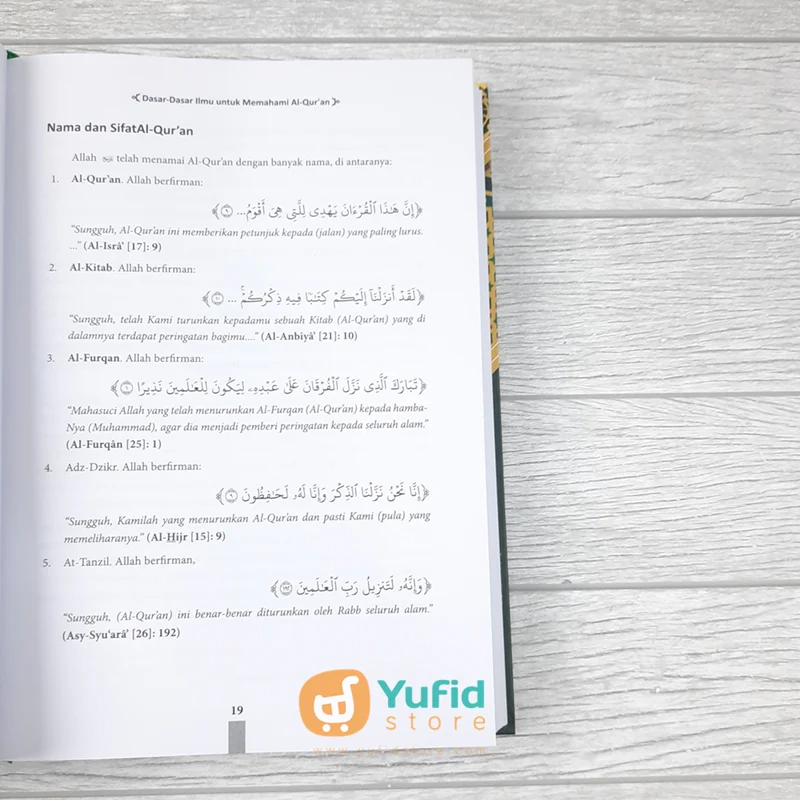 Dasar-Dasar Ilmu untuk Memahami Al-Qur'an
Nama dan SifatAl-Qur'an
Allah ﷻ telah menamai Al-Qur'an dengan banyak nama, di antaranya:
1. Al-Qur'an. Allah berfirman:
﴿إِنَّ هَٰذَا ٱلْقُرْءَانَ يَهْدِى لِلَّتِى هِىَ أَقْوَمُ... ۝٩﴾
"Sungguh, Al-Qur'an ini memberikan petunjuk kepada (jalan) yang paling lurus.
..." (Al-Isrâ' [17]: 9)
2. Al-Kitab. Allah berfirman:
﴿لَقَدْ أَنزَلْنَآ إِلَيْكُمْ كِتَٰبًا فِيهِ ذِكْرُكُمْ ۚ ... ۝١٠﴾
"Sungguh, telah Kami turunkan kepadamu sebuah Kitab (Al-Qur'an) yang di
dalamnya terdapat peringatan bagimu...." (Al-Anbiyâ' [21]: 10)
3. Al-Furqan. Allah berfirman:
﴿تَبَارَكَ ٱلَّذِى نَزَّلَ ٱلْفُرْقَانَ عَلَىٰ عَبْدِهِۦ لِيَكُونَ لِلْعَٰلَمِينَ نَذِيرًا ۝١﴾
"Mahasuci Allah yang telah menurunkan Al-Furqan (Al-Qur'an) kepada hamba-
Nya (Muhammad), agar dia menjadi pemberi peringatan kepada seluruh alam."
(Al-Furqân [25]: 1)
4. Adz-Dzikr. Allah berfirman:
﴿إِنَّا نَحْنُ نَزَّلْنَا ٱلذِّكْرَ وَإِنَّا لَهُۥ لَحَٰفِظُونَ ۝٩﴾
"Sungguh, Kamilah yang menurunkan Al-Qur'an dan pasti Kami (pula) yang
memeliharanya." (Al-Hijr [15]: 9)
5. At-Tanzil. Allah berfirman,
﴿وَإِنَّهُۥ لَتَنزِيلُ رَبِّ ٱلْعَٰلَمِينَ ۝١٩٢﴾
"Sungguh, (Al-Qur'an) ini benar-benar diturunkan oleh Rabb seluruh alam."
(Asy-Syu'arâ' [26]: 192)
19
Yufid
store
www.yufidstore.com